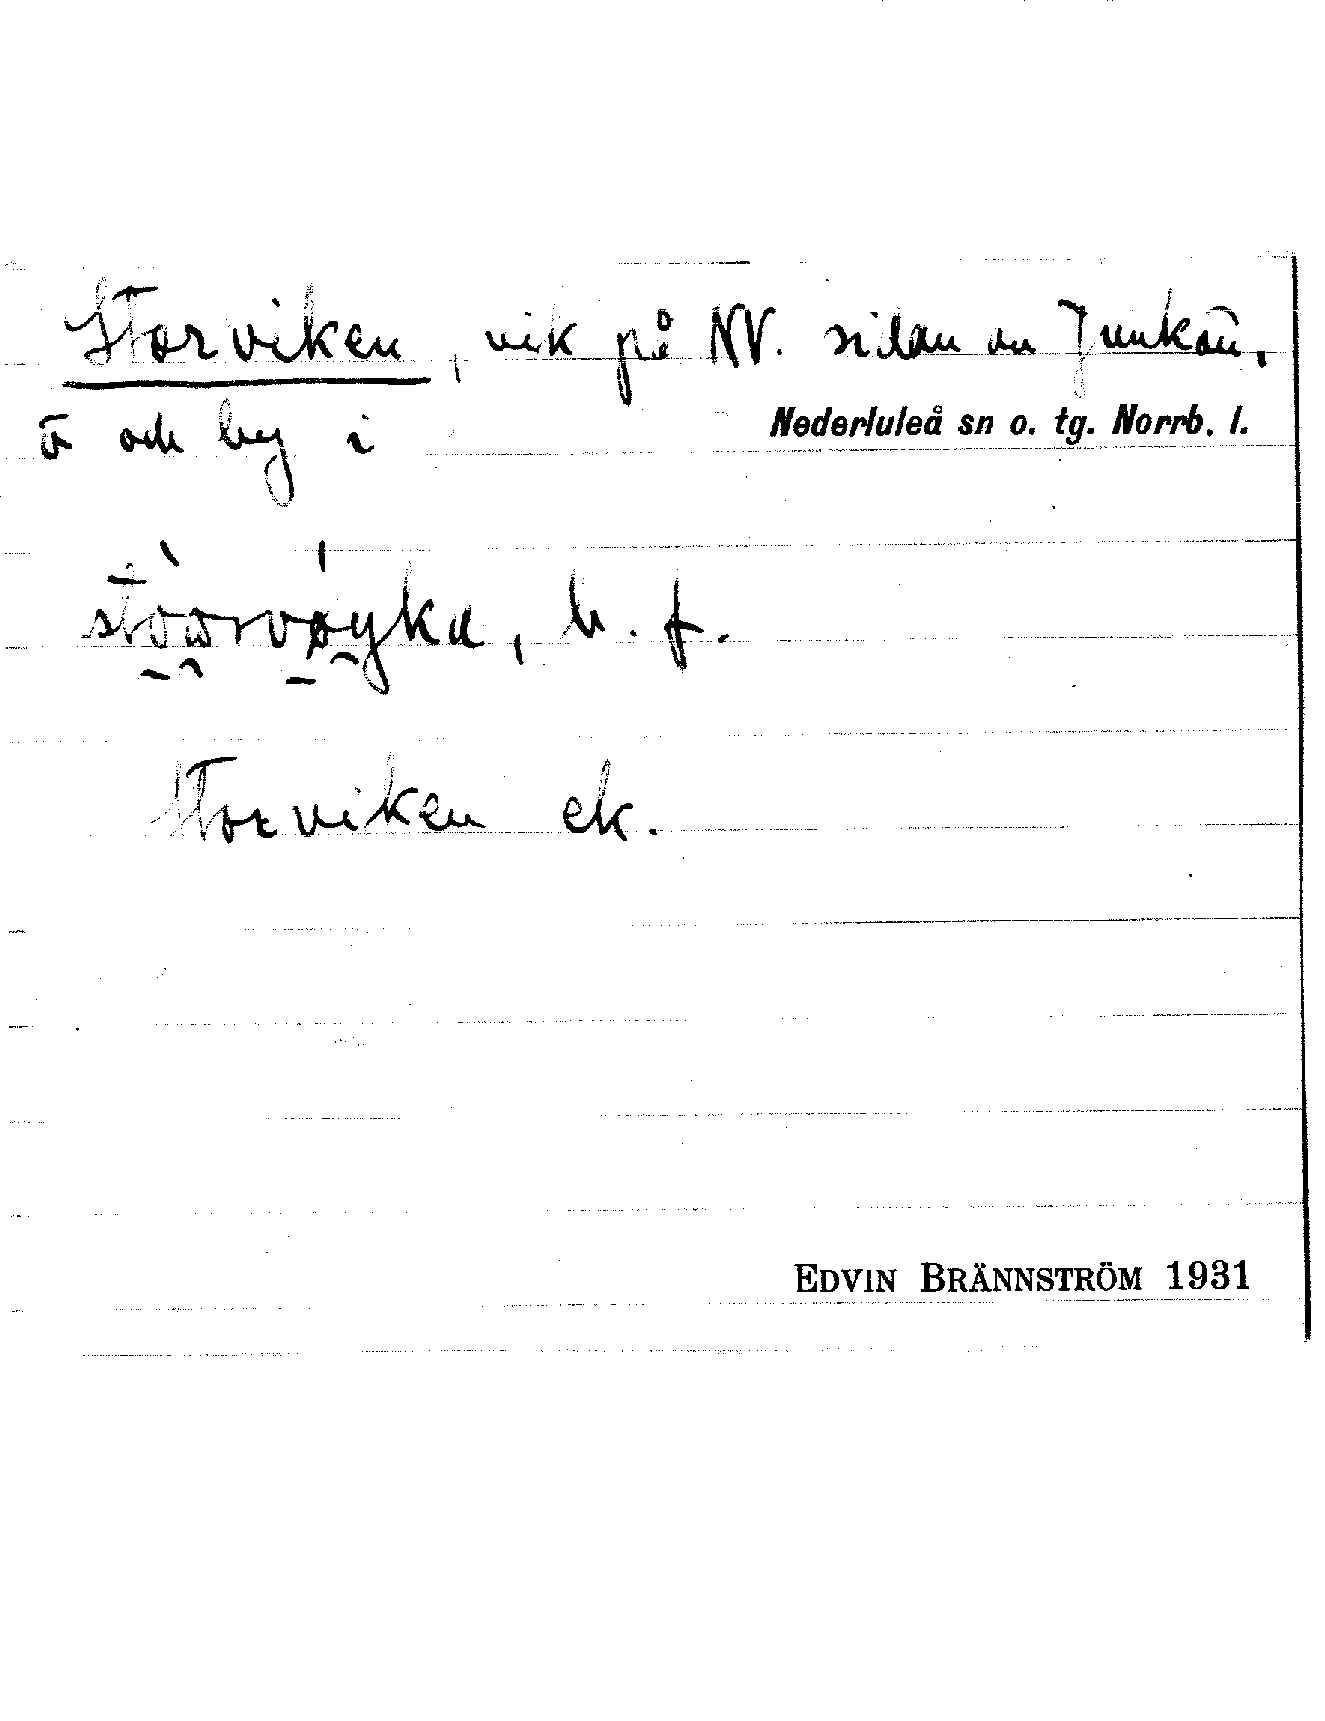 Storviken, vik på NV. sidan av Junkön,
ö och by i Nederluleå sn o. tg. Norrb. l.
stòωrvǿyka, b. f.
Storviken ek.
EDVIN BRÄNNSTRÖM 1931